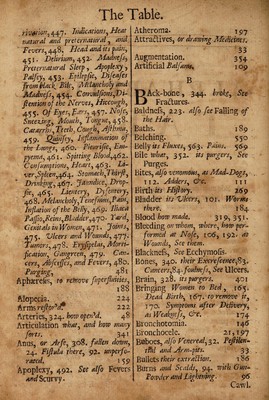 The Table.
rivation, 447. Indications, Heat
natural and preternatural, and
Fevers, 448. Head and its pain,
451. Delirium, 452. Madness,
Preternatural Sleep, Apoplexy,
Palsey, 453. Epilepsie, Diseases
from black Bile, Melancholy and
Madness, 454. Convulsions, Di-
stention of the Nerves, Hiccough,
455. Of Eyes, Ears, 457. Nose,
Sneezing, Mouth, Tongue, 458.
Catarrhs, Teeth, Cough, Asthma,
459. Quinsy, Inflammation of
the Lungs, 460. Pleurisie, Em-
pyema, 461. Spitting Blood, 462.
Consumptions, Heart, 463. Li-
ver, Spleen, 464. Stomach, Thirst,
Drinking, 467. Jaundice, Drop-
sie, 465. Lientery, Disentery,
468. Melancholy, Tenesmus, Pain,
Inflation of the Belly, 469. Iliack
Passio, Reins, Bladder, 470. Yard,
Genitals in Women, 471. Joints,
475. Ulcers and Wounds, 477.
Tumors, 478. Erysipelas, Morti-
fication, Gangreen, 479. Can-
cers, Abscesses, and Fevers, 480.
Purging, 481
Aphæresis, to remove superfluities,
188
Alopecia. 222
Arms 224
Arteries, 324. how open'd, 48
Articulation what, and how many
sorts. 341
Anus, or Arse, 308. fallen down,
24. Fistula there, 92. unperfo-
rated, 159
Apoplexy, 492. See also Fevers
and Scurvy.
Atheroma. 197
Attractives, or drawing Medicines.
33
Augmentation. 354
Artificial Balsams, 109
B
BAck-bone, 344. broke, See
Fractures.
Baldness, 223. also see Falling of
the Hair.
Baths, 189
Belching. 550
Belly its Fluxes, 563. Pains, 569
Bile what, 352. its purgers, See
Purges.
Bites, also venomous, as Mad-Dogs,
112. Adders, &c. 111
Birth its History, 269
Bladder its Ulcers, 101. Worms
there, 184
Blood how made. 319, 351.
Bleeding or whom, where, how per-
formed at Nose, 106, 192. at
Wounds, See them.
Blackness, See Ecchymosis.
Bones, 340. their Excrescense, 83.
Cancers, 84. foulness, See Ulcers.
Brain, 328. its purgers, 401
Bringing Women to Bed, 167.
Dead Birth, 167. to remove it,
170. Symptoms after Delivery,
as Weakness, &c. 174
Bronchotomia. 146
Bronchocele. 21, 197
Buboes, also Venereal, 32. Pestilen-
tial and Arm-pits. 33
Bullets their extraction. 186
Burns and Scalds, 94. with Gun-
Powder and Lightning. 96
Cawl.